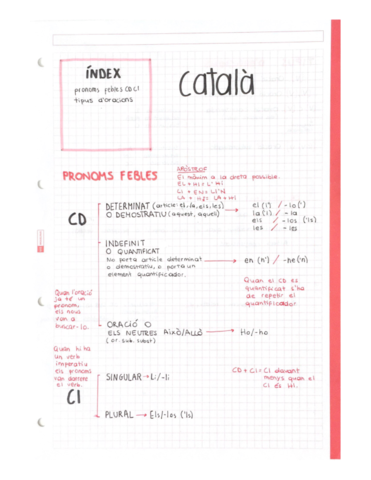 ÍNDEX
pronoms febles CD CI
tipus d'oracions
català
APÒSTROF
El màxim a la dreta possible.
EL + HI = L'HI
LI + EN = LI'N
LA + HI = LA HI
PRONOMS FEBLES
CD
DETERMINAT (article: el, la, els, les)
O DEMOSTRATIU (aquest, aquell)
el (l') / -lo (')
la (l') / -la
els / -los ('ls)
les / -les
INDEFINIT
O QUANTIFICAT
No porta article determinat
o demostratiu, o porta un
element quantificador.
en (n') / -ne ('n)
Quan el CD és
quantificat s'ha
de repetir el
quantificador.
Quan l'oració
ja té un
pronom,
els nous
van a
buscar-lo.
ORACIÓ O
ELS NEUTRES AIXÒ/ALLÒ
(or. sub. subst)
Ho/-ho
Quan hi ha
un verb
imperatiu
els pronoms
van darrere
el verb.
CD + CI = CI davant
menys quan el
CI és HI.
CI
SINGULAR → Li/-li
PLURAL → Els/-los ('ls)